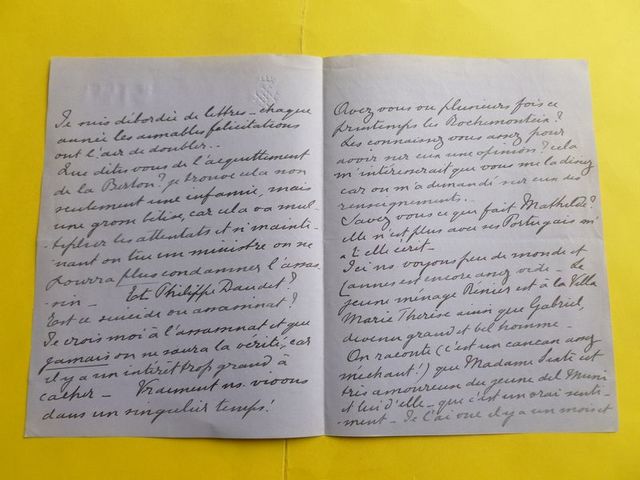 Je suis débordée de lettres - chaque
année les aimables félicitations
ont l'air de doubler..
Que dites vous de l'acquittement
de la Berton? je trouve cela non
seulement une infamie, mais
une grosse bêtise, car cela va mul-
-tiplier les attentats et si mainte-
nant on tue un ministre on ne
pourra plus condamner l'assas
-sin - Et Philippe Daudet?
Est ce suicide ou assassinat?
Je crois moi à l'assassinat et que
jamais on ne saura la vérité, car
il y a un intérêt trop grand à
cacher - Vraiment ns. vivons
dans un singulier temps!
Avez vous vu plusieurs fois ce
printemps les Rochemonteix?
Les connaissez vous assez pour
avoir sur eux une opinion? cela
m'intéresserait que vous me la disiez
car on m'a demandé sur eux des
renseignements..
Savez vous ce que fait Mathilde?
Elle n'est plus avec ses Portugais m'
a t'elle écrit -
Ici ns voyons peu de monde et
Cannes est encore assez vide - Le
jeune ménage Rénier est à la Villa
Marie Thérèse ainsi que Gabriel,
devenu grand et bel homme -
On raconte (c'est un cancan assez
méchant!) que Madame est
très amoureuse du jeune del Muni
et lui d'elle - que c'est un vrai senti-
ment - Je l'ai vue il y a un mois et